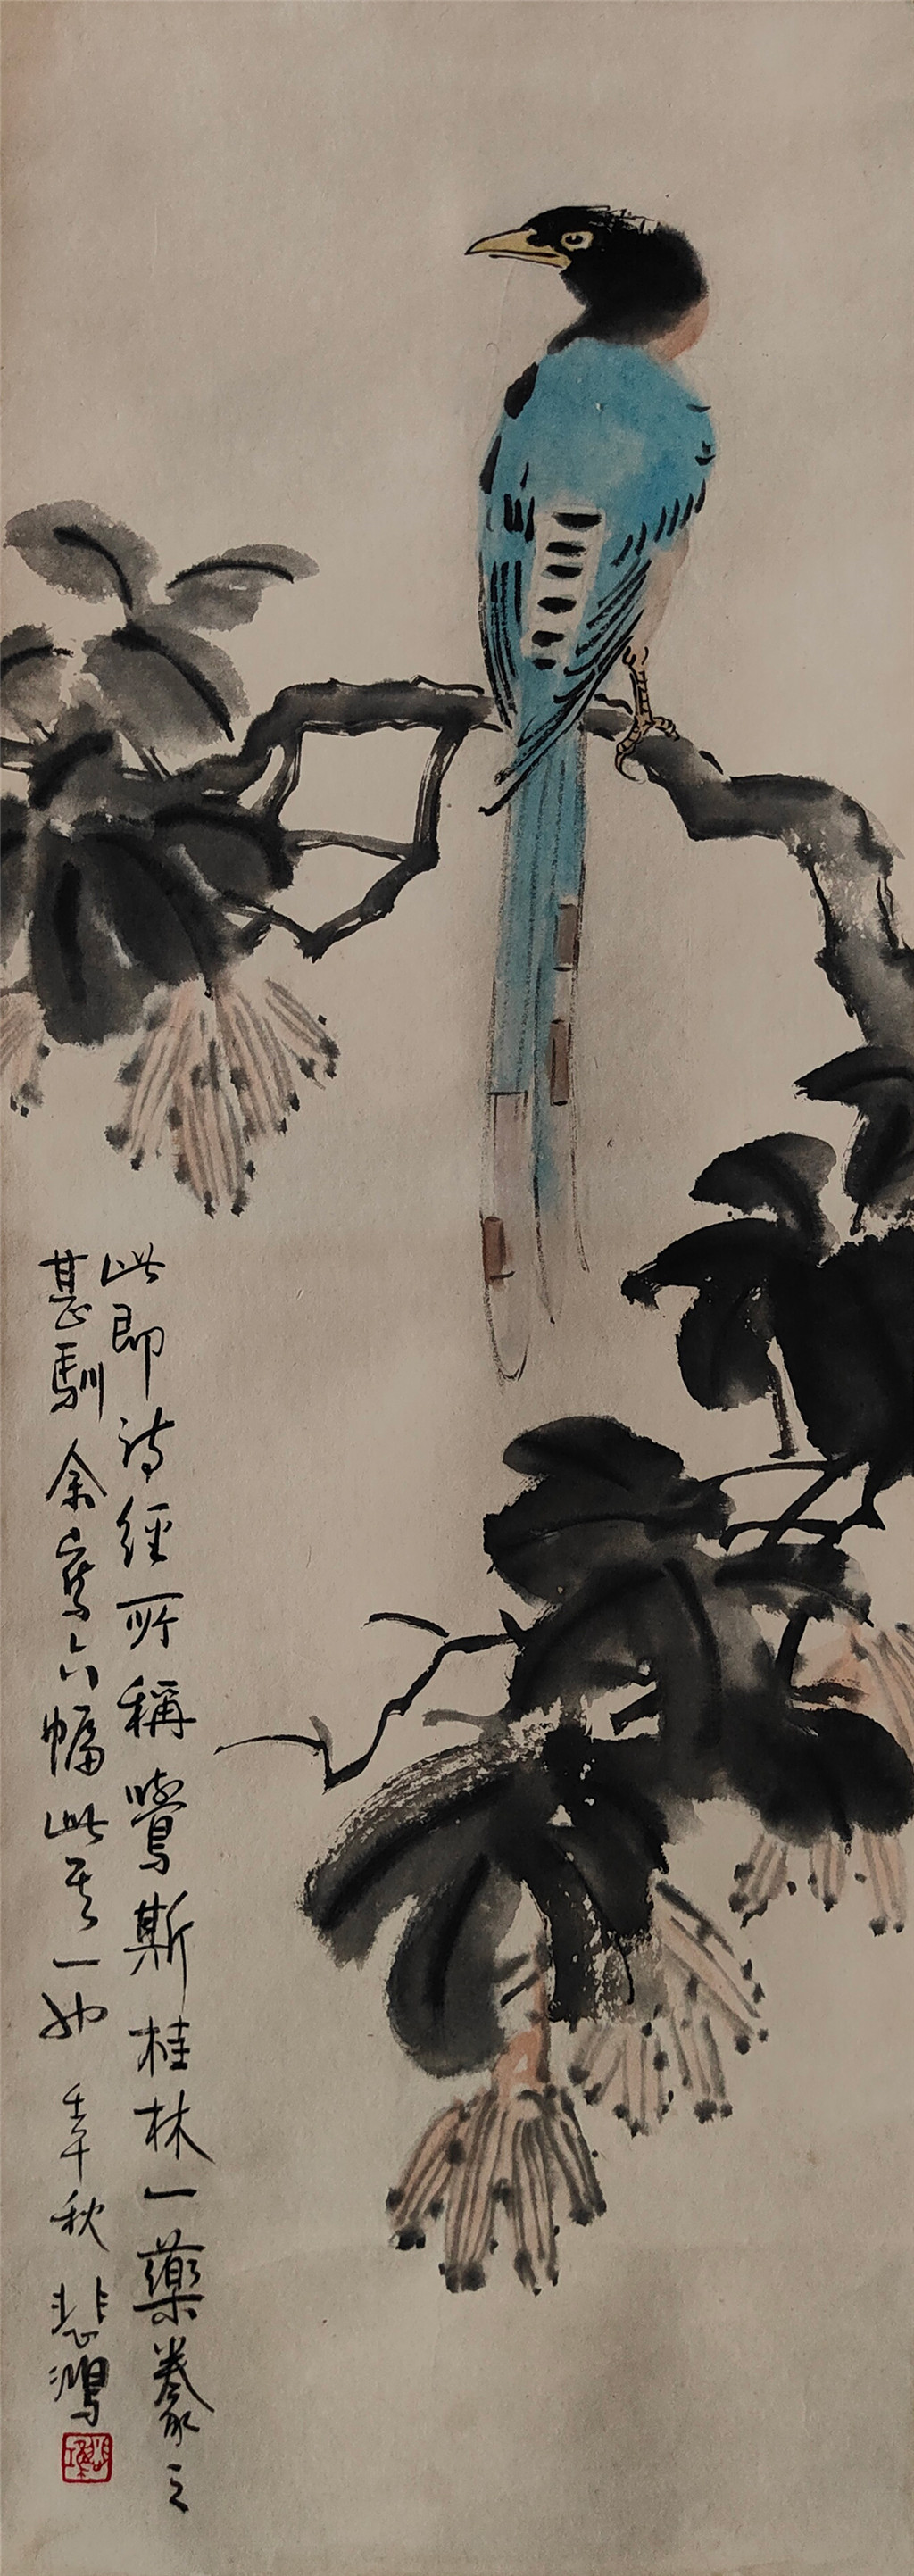 此即詩經所稱鸒斯桂林一藥豢之
甚馴余寫六幅此其一也 壬午秋 悲鴻